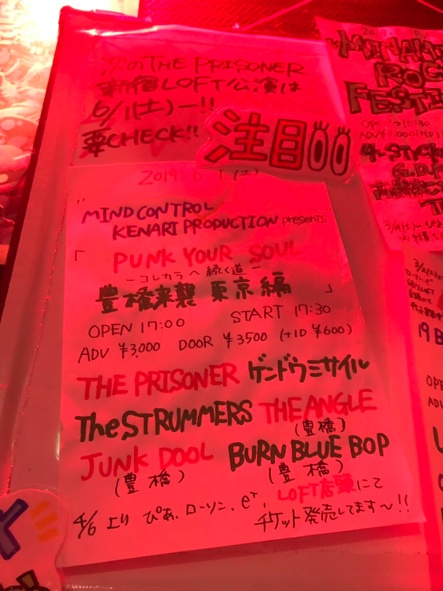 次のTHE PRISONER
新宿LOFT公演は
6/1(土)ー!!
要CHECK!!
注目
2019.6.1(土)
MIND CONTROL
KENARI PRODUCTION presents
「PUNK YOUR SOUL
ーコレカラへ続く道ー
豊橋来襲 東京編」
OPEN 17:00 START 17:30
ADV ¥3,000 DOOR ¥3500 (+1D ¥600)
THE PRISONER ゲンドウミサイル
The STRUMMERS THE ANGLE
(豊橋)
JUNK DOOL BURN BLUE BOP
(豊橋) (豊橋)
4/6 より ぴあ、ローソン、e+、LOFT店頭にて
チケット発売してます〜!!
ROCK
OPEN
ADV